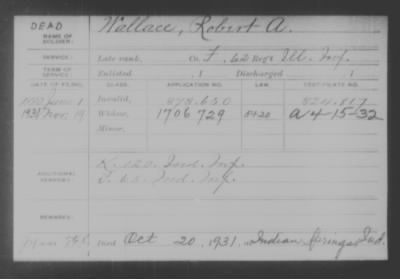 DEAD Wallace, Robert A.
NAME OF SOLDIER:
SERVICE: Late rank, Co. F, Reg't Ill. Inf.
TERM OF SERVICE: Enlisted , 1 Discharged , 1
DATE OF FILING. CLASS. APPLICATION NO. LAW. CERTIFICATE NO.
June 1 Invalid, 878.650 824.817
1931 Nov. 19 Widow, 1706729 A 4-15-32
Minor,
ADDITIONAL SERVICES:
K. 120. Ind. Inf.
Ind. Inf.
REMARKS:
Died Oct 20, 1931, at Indian Springs Ind.